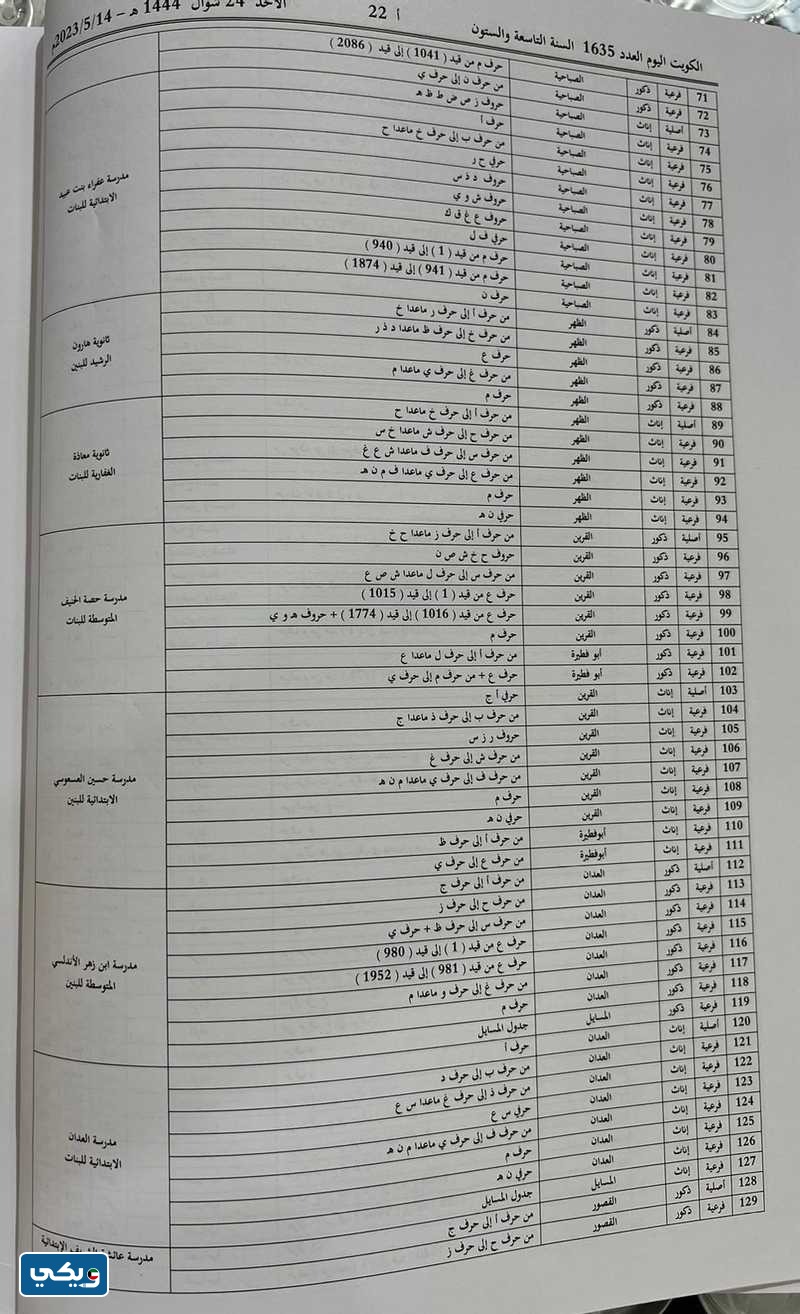 الأحد 24 شوال 1444 هـ – 2023/5/14م
أ 22
الكويت اليوم العدد 1635 السنة التاسعة والستون
71 فرعية ذكور الصباحية حرف م من قيد ( 1041 ) إلى قيد ( 2086 )
72 فرعية ذكور الصباحية من حرف ن إلى حرف ي
73 أصلية إناث الصباحية حروف ز ص ض ط ظ هـ
74 فرعية إناث الصباحية حرف أ
75 فرعية إناث الصباحية من حرف ب إلى حرف خ ماعدا ح
76 فرعية إناث الصباحية حرفي ح ر
77 فرعية إناث الصباحية حروف د ذ س
78 فرعية إناث الصباحية حروف ش و ي
79 فرعية إناث الصباحية حروف ع غ ق ك
80 فرعية إناث الصباحية حرفي ف ل
81 فرعية إناث الصباحية حرف م من قيد ( 1 ) إلى قيد ( 940 )
82 فرعية إناث الصباحية حرف م من قيد ( 941 ) إلى قيد ( 1874 )
83 فرعية إناث الصباحية حرف ن
مدرسة عفراء بنت عبيد
الابتدائية للبنات
84 أصلية ذكور الظهر من حرف أ إلى حرف ر ماعدا خ
85 فرعية ذكور الظهر من حرف خ إلى حرف ظ ماعدا د ذ ر
86 فرعية ذكور الظهر حرف ع
87 فرعية ذكور الظهر من حرف غ إلى حرف ي ماعدا م
88 فرعية ذكور الظهر حرف م
ثانوية هارون
الرشيد للبنين
89 أصلية إناث الظهر من حرف أ إلى حرف خ ماعدا ح
90 فرعية إناث الظهر من حرف ح إلى حرف ش ماعدا خ س
91 فرعية إناث الظهر من حرف س إلى حرف ف ماعدا ش ع غ
92 فرعية إناث الظهر من حرف ع إلى حرف ي ماعدا ف م ن هـ
93 فرعية إناث الظهر حرف م
94 فرعية إناث الظهر حرفي ن هـ
ثانوية معاذة
الغفارية للبنات
95 أصلية ذكور القرين من حرف أ إلى حرف ز ماعدا ح خ
96 فرعية ذكور القرين حروف ح خ ش ص ن
97 فرعية ذكور القرين من حرف س إلى حرف ل ماعدا ش ص ع
98 فرعية ذكور القرين حرف ع من قيد ( 1 ) إلى قيد ( 1015 )
99 فرعية ذكور القرين حرف ع من قيد ( 1016 ) إلى قيد ( 1774 ) + حروف هـ و ي
100 فرعية ذكور القرين حرف م
101 فرعية ذكور أبو فطيرة من حرف أ إلى حرف ل ماعدا ع
102 فرعية ذكور أبو فطيرة حرف ع + من حرف م إلى حرف ي
مدرسة حصة الحنيف
المتوسطة للبنات
103 أصلية إناث القرين حرفي أ ج
104 فرعية إناث القرين من حرف ب إلى حرف ذ ماعدا ج
105 فرعية إناث القرين حروف ر ز س
106 فرعية إناث القرين من حرف ش إلى حرف غ
107 فرعية إناث القرين من حرف ف إلى حرف ي ماعدا م ن هـ
108 فرعية إناث القرين حرف م
109 فرعية إناث القرين حرفي ن هـ
110 فرعية إناث أبوفطيرة من حرف أ إلى حرف ظ
111 فرعية إناث أبوفطيرة من حرف ع إلى حرف ي
مدرسة حسين العسعوسي
الابتدائية للبنين
112 أصلية ذكور العدان من حرف أ إلى حرف ج
113 فرعية ذكور العدان من حرف ح إلى حرف ز
114 فرعية ذكور العدان من حرف س إلى حرف ظ + حرف ي
115 فرعية ذكور العدان حرف ع من قيد ( 1 ) إلى قيد ( 980 )
116 فرعية ذكور العدان حرف ع من قيد ( 981 ) إلى قيد ( 1952 )
117 فرعية ذكور العدان من حرف غ إلى حرف و ماعدا م
118 فرعية ذكور العدان حرف م
119 فرعية ذكور المسايل جدول المسايل
مدرسة ابن زهر الأندلسي
المتوسطة للبنين
120 أصلية إناث العدان حرف أ
121 فرعية إناث العدان من حرف ب إلى حرف د
122 فرعية إناث العدان من حرف ذ إلى حرف غ ماعدا س ع
123 فرعية إناث العدان حرفي س ع
124 فرعية إناث العدان من حرف ف إلى حرف ي ماعدا م ن هـ
125 فرعية إناث العدان حرف م
126 فرعية إناث العدان حرفي ن هـ
127 فرعية إناث المسايل جدول المسايل
مدرسة العدان
الابتدائية للبنات
128 أصلية ذكور القصور من حرف أ إلى حرف ج
129 فرعية ذكور القصور من حرف ح إلى حرف ز
مدرسة الابتدائية
ويكي